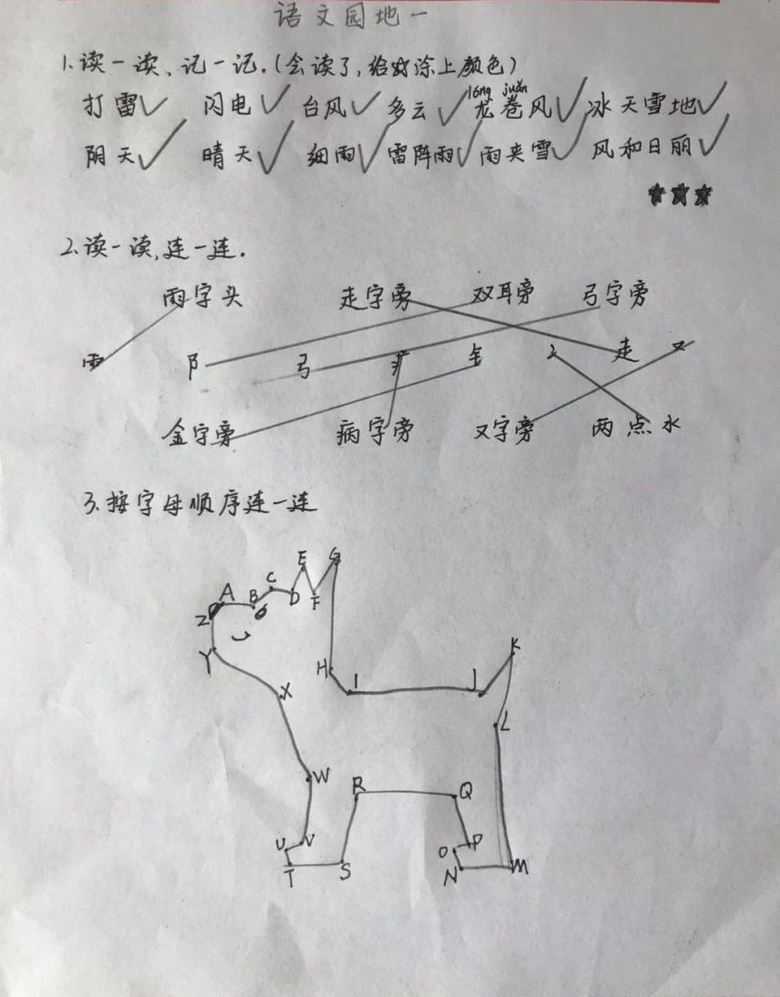 语文园地一
1.读一读、记一记.(会读了,给 涂上颜色)
lóng juǎn
打雷 闪电 台风 多云 龙卷风 冰天雪地
阴天 晴天 细雨 雷阵雨 雨夹雪 风和日丽
2.读一读,连一连.
雨字头 走字旁 双耳旁 弓字旁
⻗ 阝 弓 疒 钅 冫 走 又
金字旁 病字旁 又字旁 两点水
3.按字母顺序连一连
E G
C
A B D F
Z
Y K
H I J
X
L
W
R Q
U V O P
T S N M